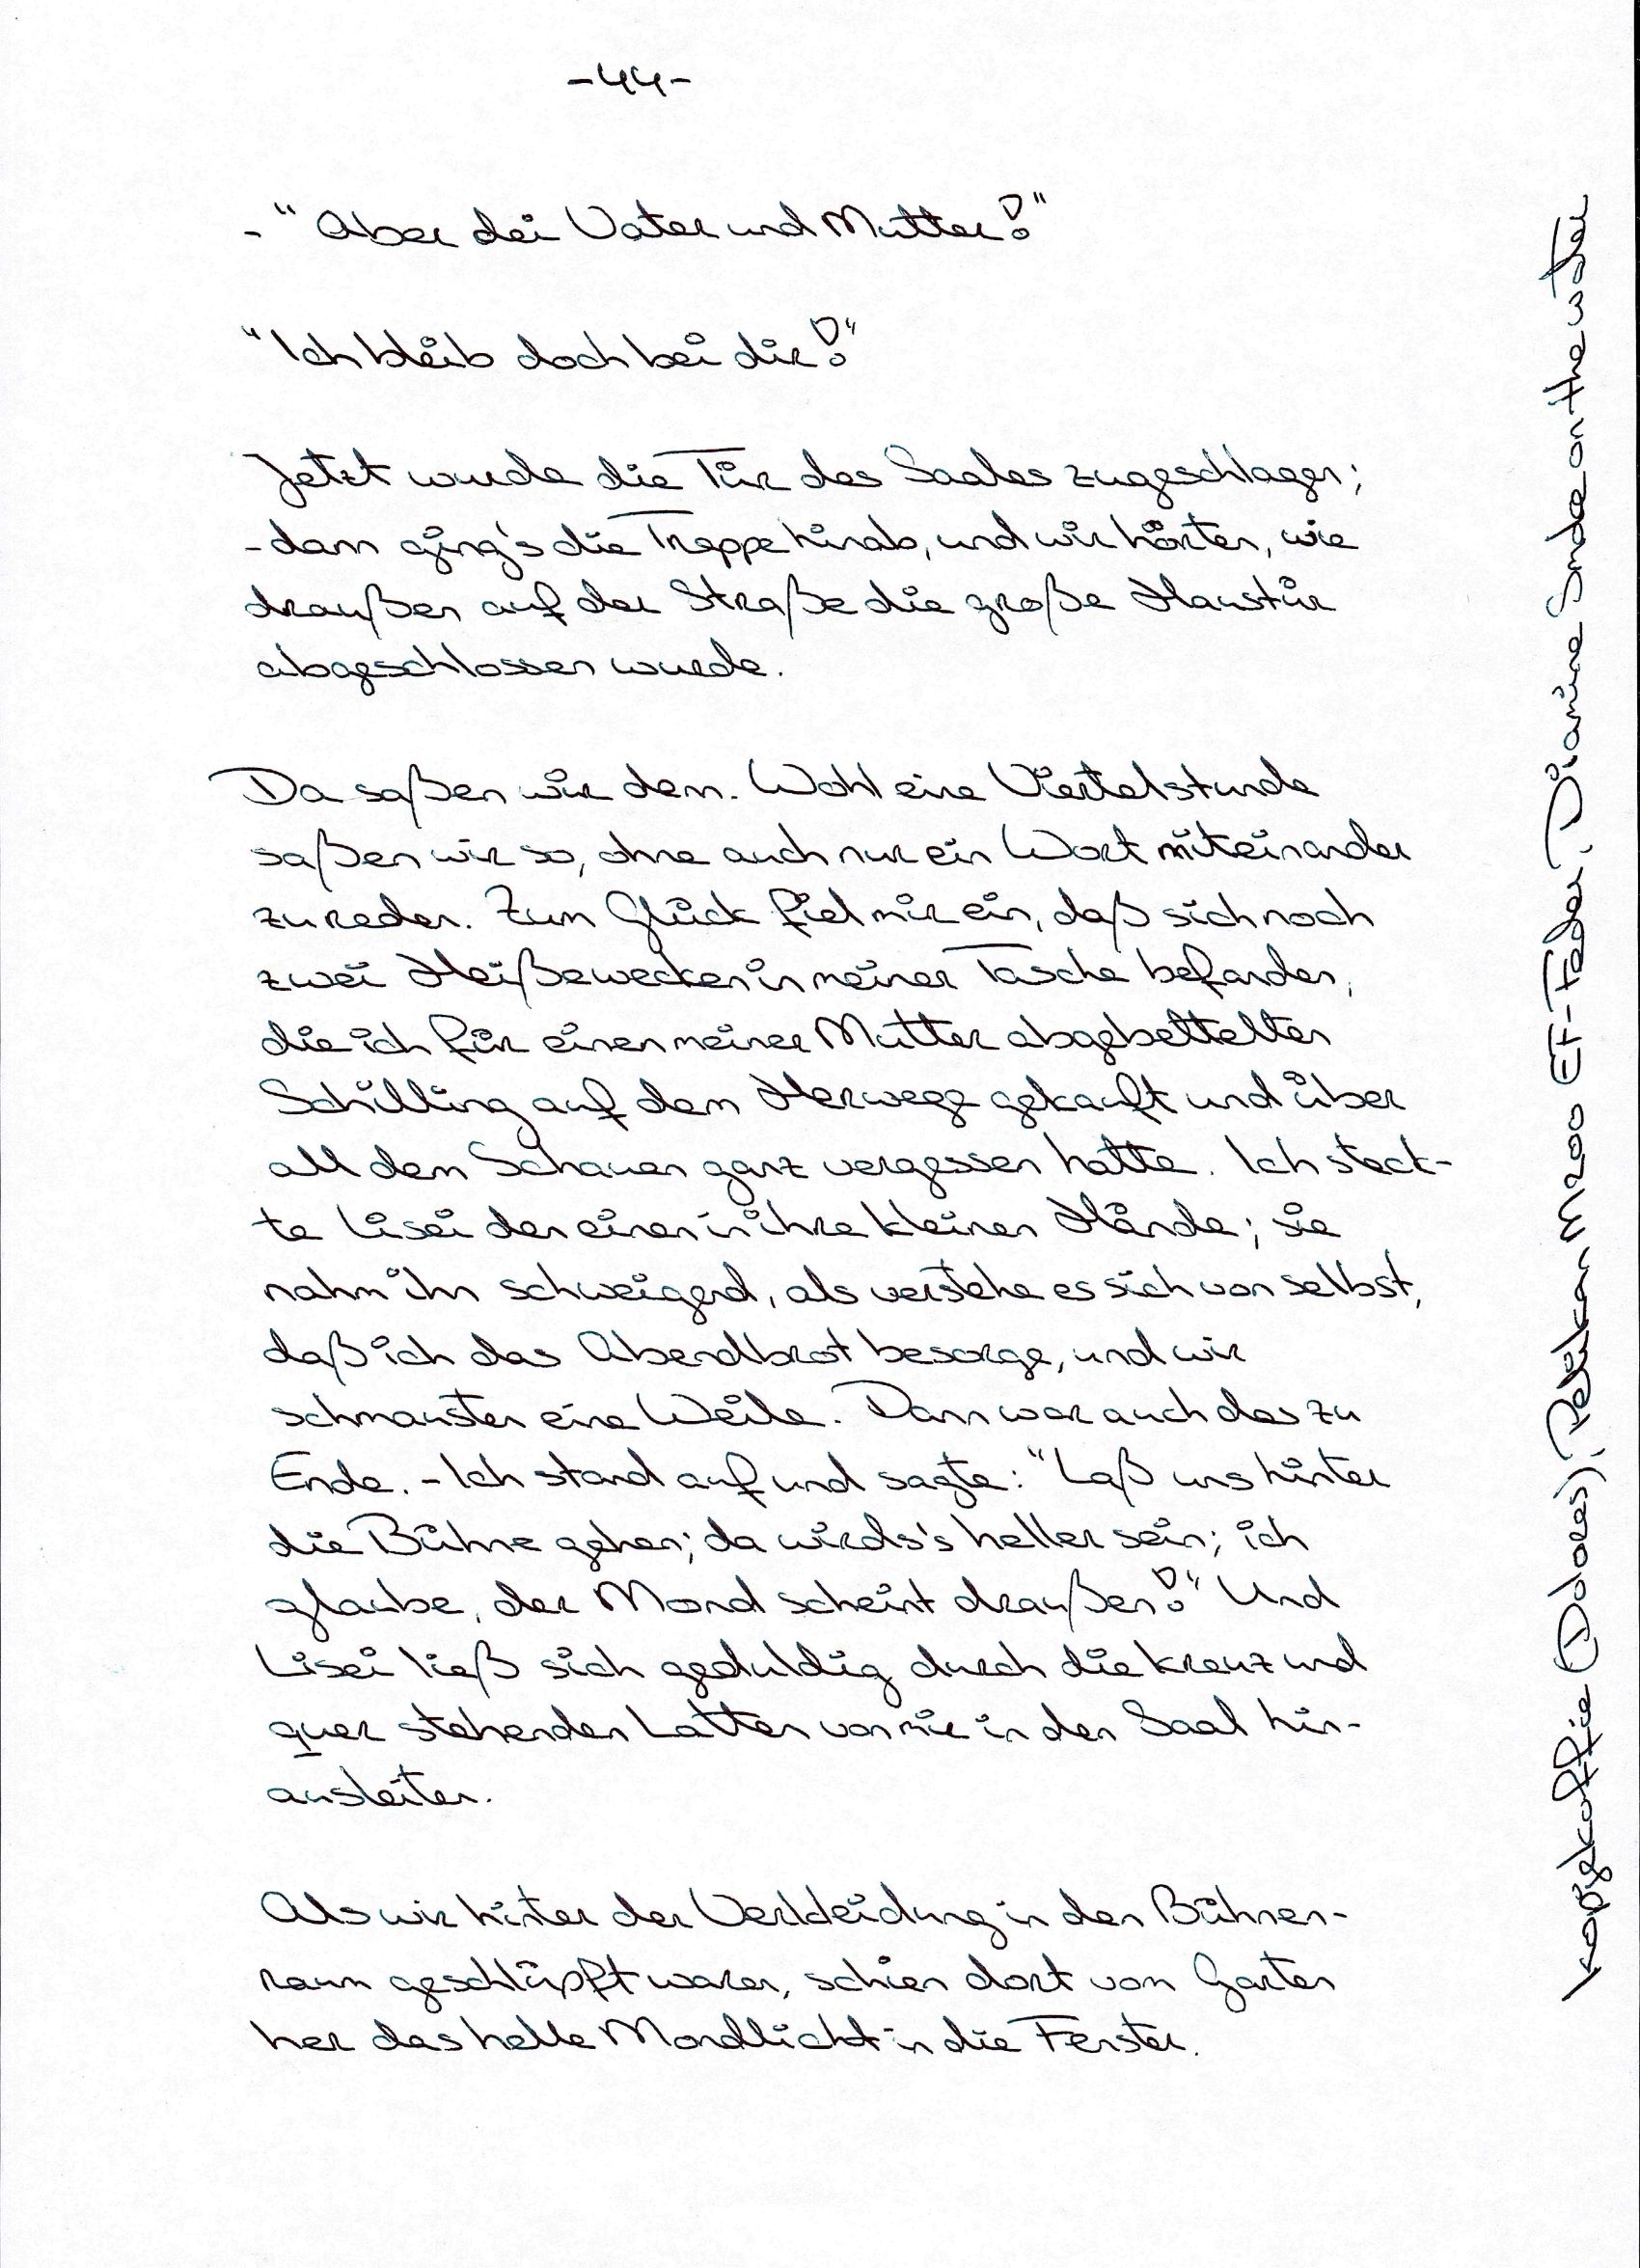 -44-
-"Aber dei Vater und Mutter!"
"Ich bleib doch bei dir!"
Jetzt wurde die Tür des Saales zugeschlagen;
-dann ging's die Treppe hinab, und wir hörten, wie
draußen auf der Straße die große Haustür
abgeschlossen wurde.
Da saßen wir denn. Wohl eine Viertelstunde
saßen wir so, ohne auch nur ein Wort miteinander
zu reden. Zum Glück fiel mir ein, daß sich noch
zwei Heißewecken in meiner Tasche befanden,
die ich für einen meiner Mutter abgebettelten
Schilling auf dem Herwege gekauft und über
all dem Schauen ganz vergessen hatte. Ich steck-
te Lisei den einen in ihre kleinen Hände; sie
nahm ihn schweigend, als verstehe es sich von selbst,
daß ich das Abendbrot besorge, und wir
schmausten eine Weile. Dann war auch das zu
Ende. - Ich stand auf und sagte: "Laß uns hinter
die Bühne gehen; da wirds's heller sein; ich
glaube, der Mond scheint draußen!" Und
Lisei ließ sich geduldig durch die kreuz und
quer stehenden Latten von mir in den Saal hin-
ausleiten.
Als wir hinter der Verkleidung in den Bühnen-
raum geschlüpft waren, schien dort vom Garten
her das helle Mondlicht in die Fenster.
(Dolores); Pelikan M200 EF-Feder; Diamine Smoke on the water